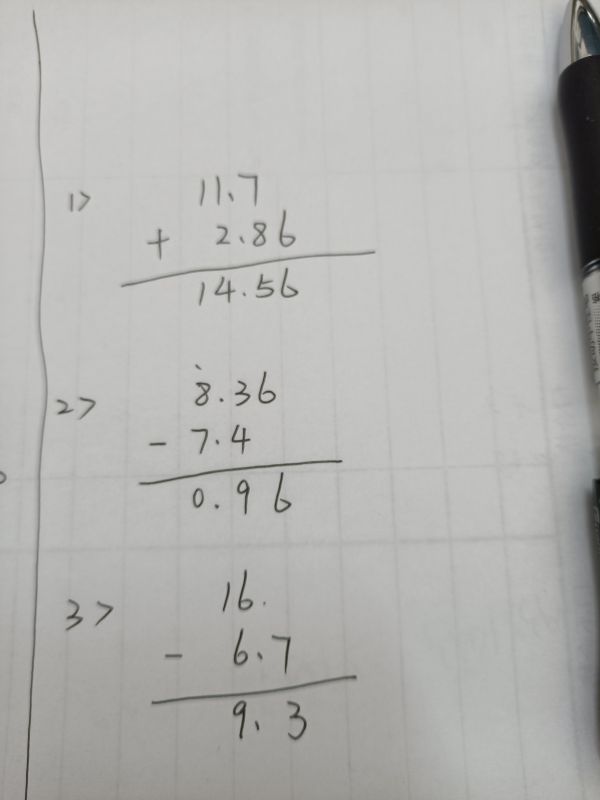 1> 11.7
+ 2.86
14.56
2> 8.36
- 7.4
0.96
3> 16.
- 6.7
9.3